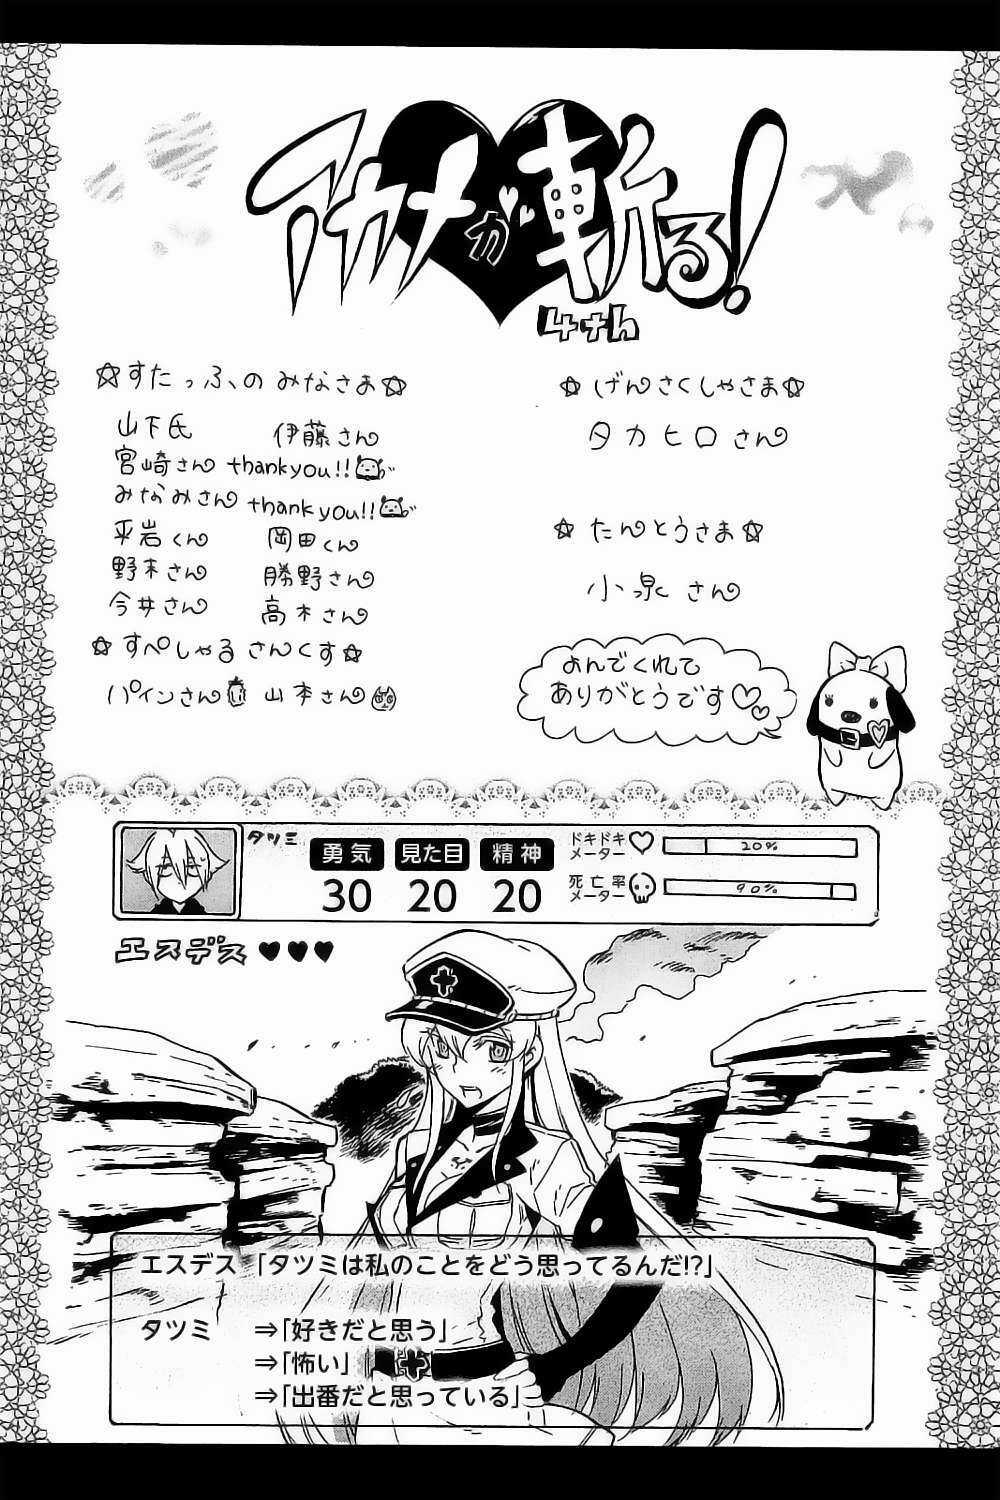 アカメが斬る!
4かん
☆すたっふ、の みなさま☆
山下氏 伊藤さん
宮崎さん thank you!!
みなみさん thank you!!
平岩くん 岡田くん
野本さん 勝野さん
今井さん 高木さん
☆すぺしゃる さんくす☆
パインさん 山本さん
☆げんさくしゃさま☆
タカヒロさん
☆たんとうさま☆
小泉さん
よんでくれて
ありがとうです♡♡
タツミ
勇気 見た目 精神
30 20 20
ドキドキメーター 20%
死亡率メーター 90%
エスデス ♥♥♥
エスデス 「タツミは私のことをどう思ってるんだ!?」
タツミ ⇒「好きだと思う」
⇒「怖い」
⇒「出番だと思っている」